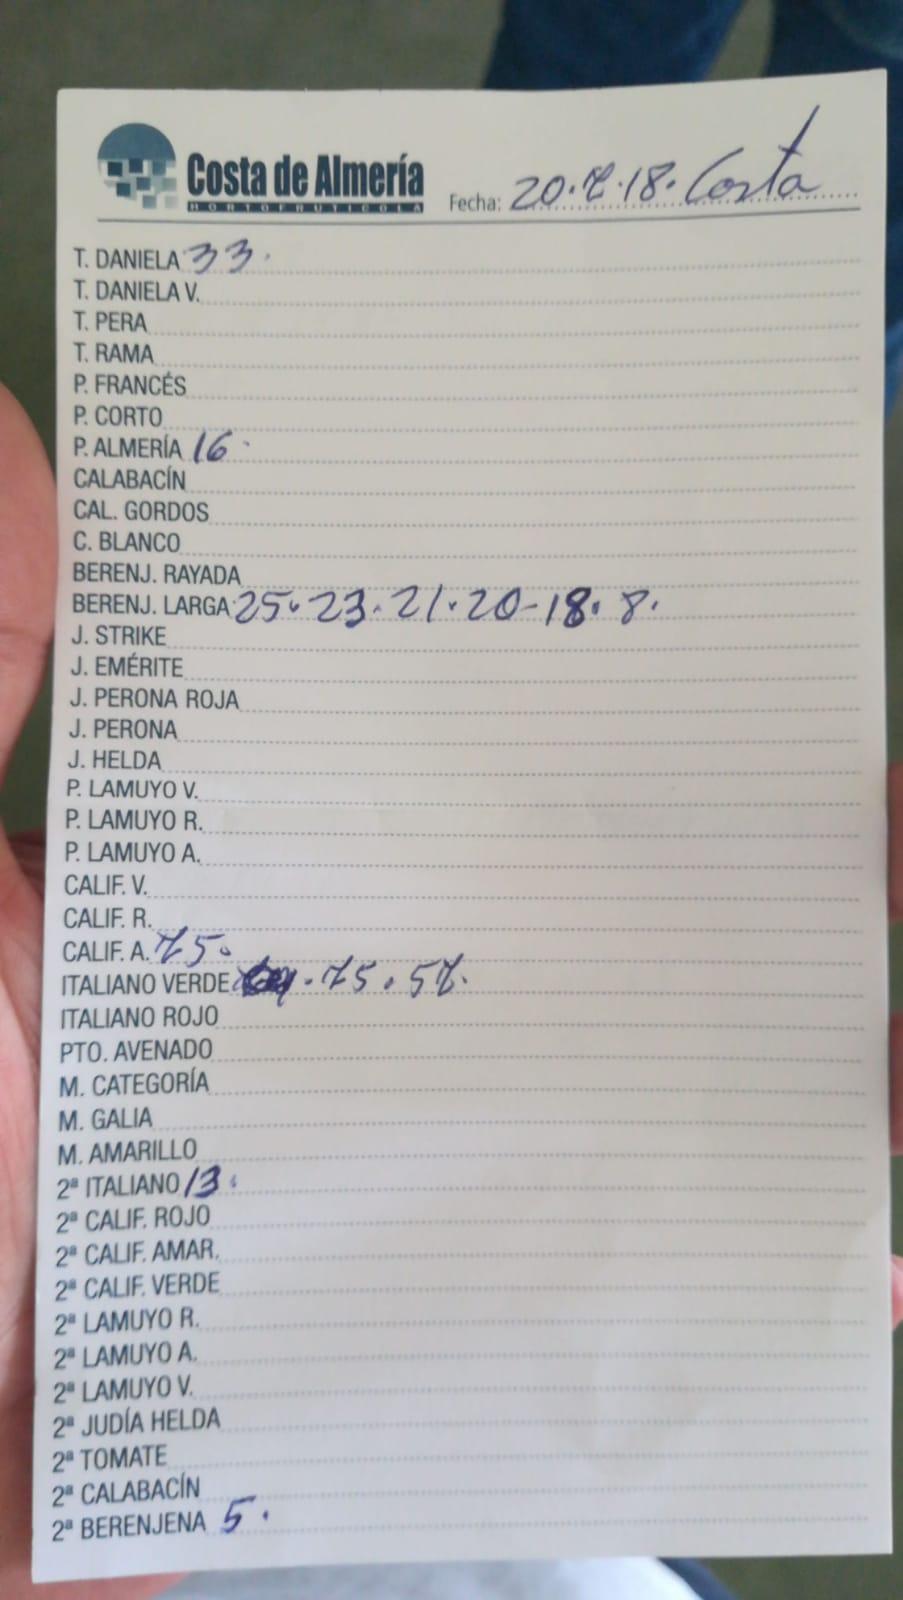 Costa de Almería
HORTOFRUTICOLA
Fecha: 20.7.18. Costa
T. DANIELA 33.
T. DANIELA V.
T. PERA
T. RAMA
P. FRANCÉS
P. CORTO
P. ALMERÍA 16.
CALABACÍN
CAL. GORDOS
C. BLANCO
BERENJ. RAYADA
BERENJ. LARGA 25.23.21.20-18.8.
J. STRIKE
J. EMÉRITE
J. PERONA ROJA
J. PERONA
J. HELDA
P. LAMUYO V.
P. LAMUYO R.
P. LAMUYO A.
CALIF. V.
CALIF. R.
CALIF. A. 75.
ITALIANO VERDE . 75 . 57.
ITALIANO ROJO
PTO. AVENADO
M. CATEGORÍA
M. GALIA
M. AMARILLO
2ª ITALIANO 13.
2ª CALIF. ROJO
2ª CALIF. AMAR.
2ª CALIF. VERDE
2ª LAMUYO R.
2ª LAMUYO A.
2ª LAMUYO V.
2ª JUDÍA HELDA
2ª TOMATE
2ª CALABACÍN
2ª BERENJENA 5.